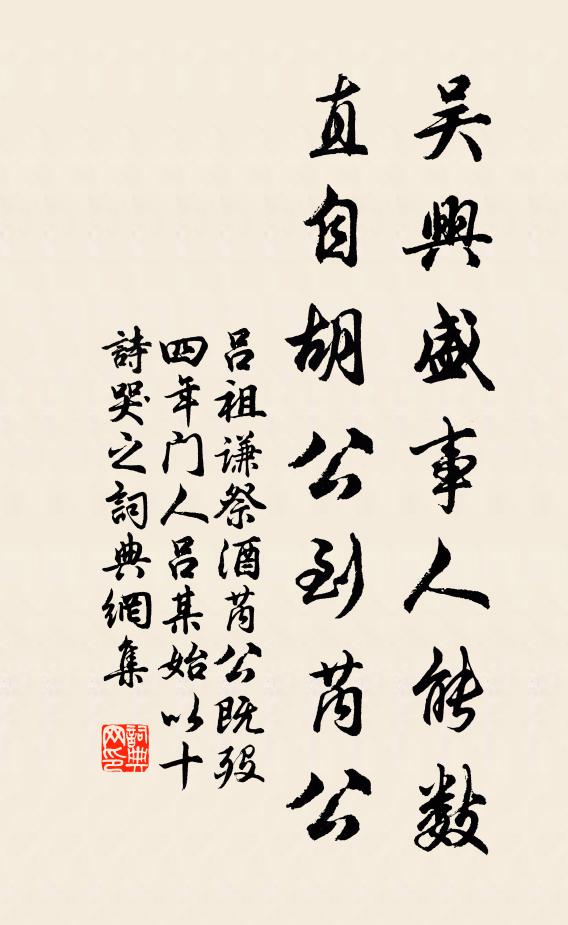 吴興盛事人能数
直自胡公到芮公
吕祖谦祭酒芮公既殁
四年门人吕某始以十
詩哭之詞典網集
詞典网印